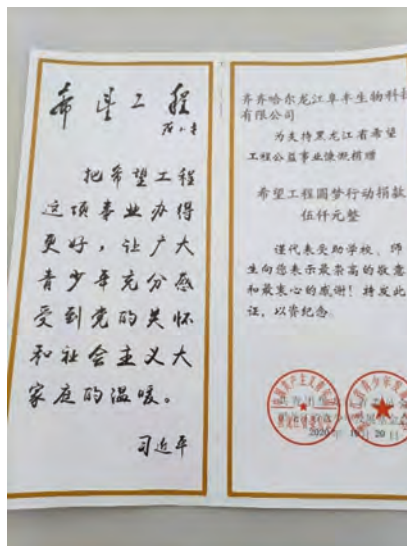 希望工程
邓小平
把希望工程
这项事业办得
更好，让广大
青少年充分感
受到党的关怀
和社会主义大
家庭的温暖。
习近平
齐齐哈尔龙江阜丰生物科技
有限公司
为支持黑龙江省希望
工程公益事业慷慨捐赠
希望工程圆梦行动捐款
伍仟元整
谨代表受助学校、师
生向您表示最崇高的敬意
和最衷心的感谢！特发此
证，以资纪念。